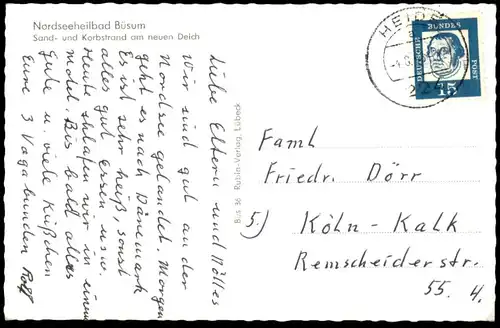 Nordseeheilbad Büsum
Sand- und Korbstrand am neuen Deich
Liebe Eltern und
Wir sind gut an der
Nordsee gelandet. Morgen
geht es nach Dänemark
Es ist sehr heiß, sonst
alles gut Essen usw.
Heute schlafen wir in einem
Bis bald alles
Gute u. viele Küßchen
Eure 3 Vagabunden Rolf
Büs 36 Rubin-Verlag, Lübeck
HEIDE
224
DEUTSCHE BUNDESPOST
15
Famh
Friedr. Dörr
5) Köln - Kalk
Remscheiderstr.
55. 4.